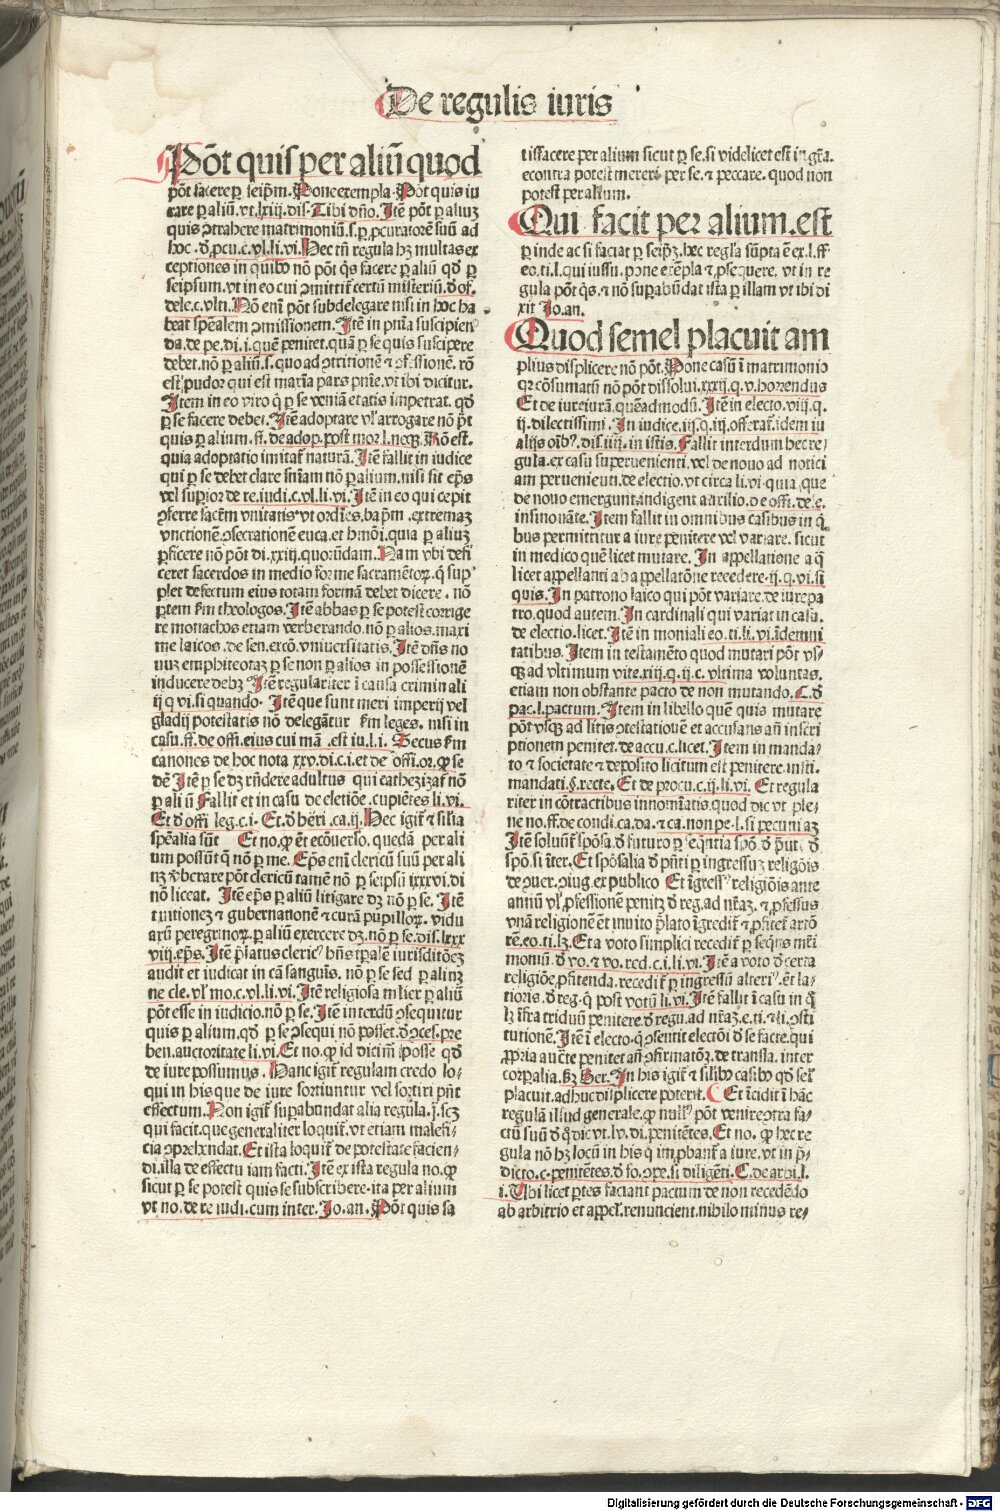 De regulis iuris
Põt quis per aliũ quod
põt facere ꝑ seip̃m. Pone exempla. Põt quis iu
rare ꝑ aliũ. vt. lxiii. dis. Tibi dño. Itẽ põt ꝑ aliuꝫ
quis ꝯtrahere matrimoniũ. s. ꝑ ꝓcuratorẽ suũ ad
hoc. ð ꝓcu. c. vl. li. vi. Hec tñ regula hꝫ multas ex
ceptiones in quibꝰ nõ põt q̃s facere ꝑ aliũ qð ꝑ
seipsum. vt in eo cui ꝯmittit᷑ certũ misteriũ. ð of.
dele. c. vlti. Nõ em̃ põt subdelegare nisi in hoc ha
beat sp̃ealem ꝯmissionem. Itẽ in pñia suscipien
da. de pe. di. i. quẽ penitet. quã ꝑ se quis suscipere
debet. nõ ꝑ aliũ. s. quo ad ꝯtritionẽ ⁊ ꝯfessionẽ. rõ
est pudor qui est maxĩa pars pnĩe. vt ibi dicitur.
Item in eo viro q̃ ꝑ se veniã etatis impetrat. qð
ꝑ se facere debet. Itẽ adoptare vl̃ arrogare nõ p̃t
quis ꝑ alium. ff. de adop. post mor. l. neqꝫ. Rõ est.
quia adoptatio imitat᷑ naturã. Itẽ fallit in iudice
qui ꝑ se debet clare sñiam nõ ꝑ alium. nisi sit ep̃s
vel supior de re. iudi. c. vl. li. vi. Itẽ in eo qui cepit
ꝯferre sacrm̃ vnitatis vt ordĩes. bap̃tm. extremaꝫ
vnctionẽ. ꝯsecrationẽ euca. et hmõi. quia ꝑ aliuꝫ
ꝑficere nõ põt di. xxiii. quorũdam. Nam vbi defi
ceret sacerdos in medio forme sacramẽtoꝝ. q̃ sup
plet defectum eius totam formã debet dicere. nõ
ꝑtem fm̃ theologos. Itẽ abbas ꝑ se potest corrige
re monachos etiam verberando. nõ ꝑ alios. maxi
me laicos. de sen. excõ. vniuersitatis. Itẽ dñs no
uuꝫ emphiteotaꝫ ꝑ se non ꝑ alios in possessionẽ
inducere debꝫ. Itẽ regulariter ĩ causa criminali
ij. q. vi. si quando. Itẽ que sunt meri imperij vel
gladij potestatis nõ delegãtur fm̃ leges. nisi in
casu. ff. de offi. eius cui mã. est iu. l. i. Secus fm̃
canones de hoc nota xxv. di. c. i. et de offi. or. ꝙ se
dẽ Itẽ ꝑ se dꝫ rñdere adultus qui cathezizat᷑ nõ
ꝑ aliũ Fallit et in casu de eletiõe. cupiẽtes li. vi.
Et ð offi leg. c. i. Et. ð heri. ca. ij. Hec igit᷑ ⁊ silia
sp̃ealia sũt Et no. ꝙ ẽt ecõuerso. quedã per ali
um possũt q̃ nõ ꝑ me. Ep̃s em̃ clericũ suũ per ali
uꝫ v̾berare põt clericũ tamẽ nõ ꝑ seipsũ lxxxvi. di
nõ liceat. Itẽ ep̃s ꝑ aliũ litigare dꝫ nõ ꝑ se. Itẽ
tuitionez ⁊ gubernationẽ ⁊ curã pupilloꝝ. vidu
arũ peregrinoꝝ. ꝑ aliũ exercere dꝫ. nõ ꝑ se. dis. lxxx
viij. ep̃s. Itẽ p̃latus cleric᷒ hñs tp̃alẽ iurisditõeꝫ
audit et iudicat in cã sanguĩs. nõ ꝑ se sed ꝑ aliuꝫ
ne cle. vl̃ mo. c. vl. li. vi. Itẽ religiosa mlier ꝑ aliũ
põt esse in iudicio. nõ ꝑ se. Itẽ interdũ ꝯsequitur
quis ꝑ alium. qð ꝑ se ꝯsequi nõ posset. ð ꝯces. pre
ben. auctoritate li. vi. Et no. ꝙ id dicim̃ posse qð
de iure possumus. Hanc igit᷑ regulam credo lo-
qui in his que de iure sortiuntur vel sortiri pñt
effectum. Non igit᷑ supabundat alia regula. j. scꝫ
qui facit. que generaliter loquit᷑. vt etiam malefi-
cia ꝯprehẽndat. Et ista loquit᷑ de potestate facien-
di. illa de effectu iam facti. Itẽ ex ista regula no. ꝙ
sicut ꝑ se potest quis se subscribere. ita per alium
vt no. de re iudi. cum inter. Io. an. Põt quis sa
tisfacere per alium sicut ꝑ se. si videlicet est in gr̃a.
econtra potest mereri per se. ⁊ peccare. quod non
potest per alium.
Qui facit per alium. est
ꝑinde ac si faciat ꝑ seip̃ꝫ. hec regl̃a sũpta ẽ ex. l. ff
eo. ti. l. qui iussu. pone exẽpla ⁊ ꝓsequere. vt in re
gula põt q̃s. ⁊ nõ supabũdat ista ꝑ illam vt ibi di
xit Io. an.
Quod semel placuit am
plius displicere nõ põt. Pone casũ ĩ matrimonio
qꝛ cõsumatũ nõ põt dissolui. xxxij. q. v. horrendus
Et de iureiurã. quẽadmodũ. Itẽ in electo. viij. q.
ij. dilectissimi. In iudice. iij. q. iij. offerat᷑. idem iu
alijs oĩbꝰ. dis. iiij. in istis. Fallit interdum hec re-
gula. ex casu superuenienti. vel de nouo ad notici
am peruenieuti. de electio. vt circa li. vi. quia que
de nouo emergunt. indigent auxilio. de offi. de. e.
insinuãte. Item fallit in omnibus casibus in q̃
bus permittitur a iure penitere vel variare. sicut
in medico quẽ licet mutare. In appellatione a q̃
licet appellanti ab appellatõne recedere. ij. q. vi. si
quis. In patrono laico qui põt variare. de iure pa
tro. quod autem. In cardinali qui variat in casu.
de electio. licet. Itẽ in moniali eo. ti. li. vi. ĩdemni
tatibus. Item in testamẽto quod mutari põt vs-
qꝫ ad vltimum vite. xiij. q. ij. c. vltima voluntas.
etiam non obstante pacto de non mutando. C. ð
pac. l. pactum. Item in libello quẽ quis mutare
põt vsqꝫ ad litis ꝯtestationẽ et accusans añ inscri
ptionem penitet. de accu. c. licet. Item in manda-
to ⁊ societate ⁊ deposito licitum est penitere. insti.
mandati. §. recte. Et de procu. c. ij. li. vi. Et regula
riter in cõtractibus innomiatis. quod dic vt ple-
ne no. ff. de condi. ca. da. ⁊ ca. non pe. l. si pecuniaꝫ
Itẽ soluunt᷑ spõsa. ð futuro ꝑ seq̃ntia spõ. ð p̃nti. ð
spõ. si iter. Et spõsalia ð pñti ꝑ ingressuꝫ religiõis
de ꝯuer. ꝯiug. ex publico Et ĩgress᷒ religiõis ante
annũ vl̃ ꝓfessionẽ penitꝫ ð reg. ad nr̃aꝫ. ⁊ ꝓfessus
vnã religionẽ et inuito p̃lato ĩgredit᷑ ⁊ ꝓfitet᷑ artio
rẽ. eo. ti. lꝫ. Et a voto simplici recedit᷑ ꝑ sequẽs mr̃i
moniũ. ð vo. ⁊ vo. red. c. i. li. vi. Itẽ a voto ð certa
religiõe. ꝓfitenda. recedit᷑ ꝑ ingressũ alteri᷒. ẽt la-
tioris. ð reg. q̃ post votũ li. vi. Itẽ fallit ĩ casu in q̃
lꝫ ĩfra triduũ penitere. ð regu. ad nr̃aꝫ. e. ti. ⁊ li. ꝯsti
tutionẽ. Itẽ ĩ electo. q̃ ꝯsentit electõi ð se facte. qui
ꝓpria auctẽ penitet añ ꝯfirmatõꝫ. de transla. inter
corporalia. fm̃ Ber. In his igit᷑ ⁊ silibꝰ casibꝰ qð sel̃
placuit. adhuc displicere poterit. Et ĩcidit ĩ hãc
regulã illud generale. ꝙ null᷒ põt venire ꝯtra fa-
ctũ suũ ð q̃ dic vt. lv. di. penitẽtes. Et no. ꝙ hec re
gula nõ hꝫ locũ in his q̃ im̃ꝓbant᷑ a iure. vt in p̃-
dicto. c. penitẽtes. ð fo. ꝯpe. si diligẽti. C. de arbi. l.
i. Vbi licet ꝑtes faciant pactum de non recedẽdo
ab arbitrio et appel̃. renuncient. nihilo minus re-
Digitalisierung gefördert durch die Deutsche Forschungsgemeinschaft - DFG